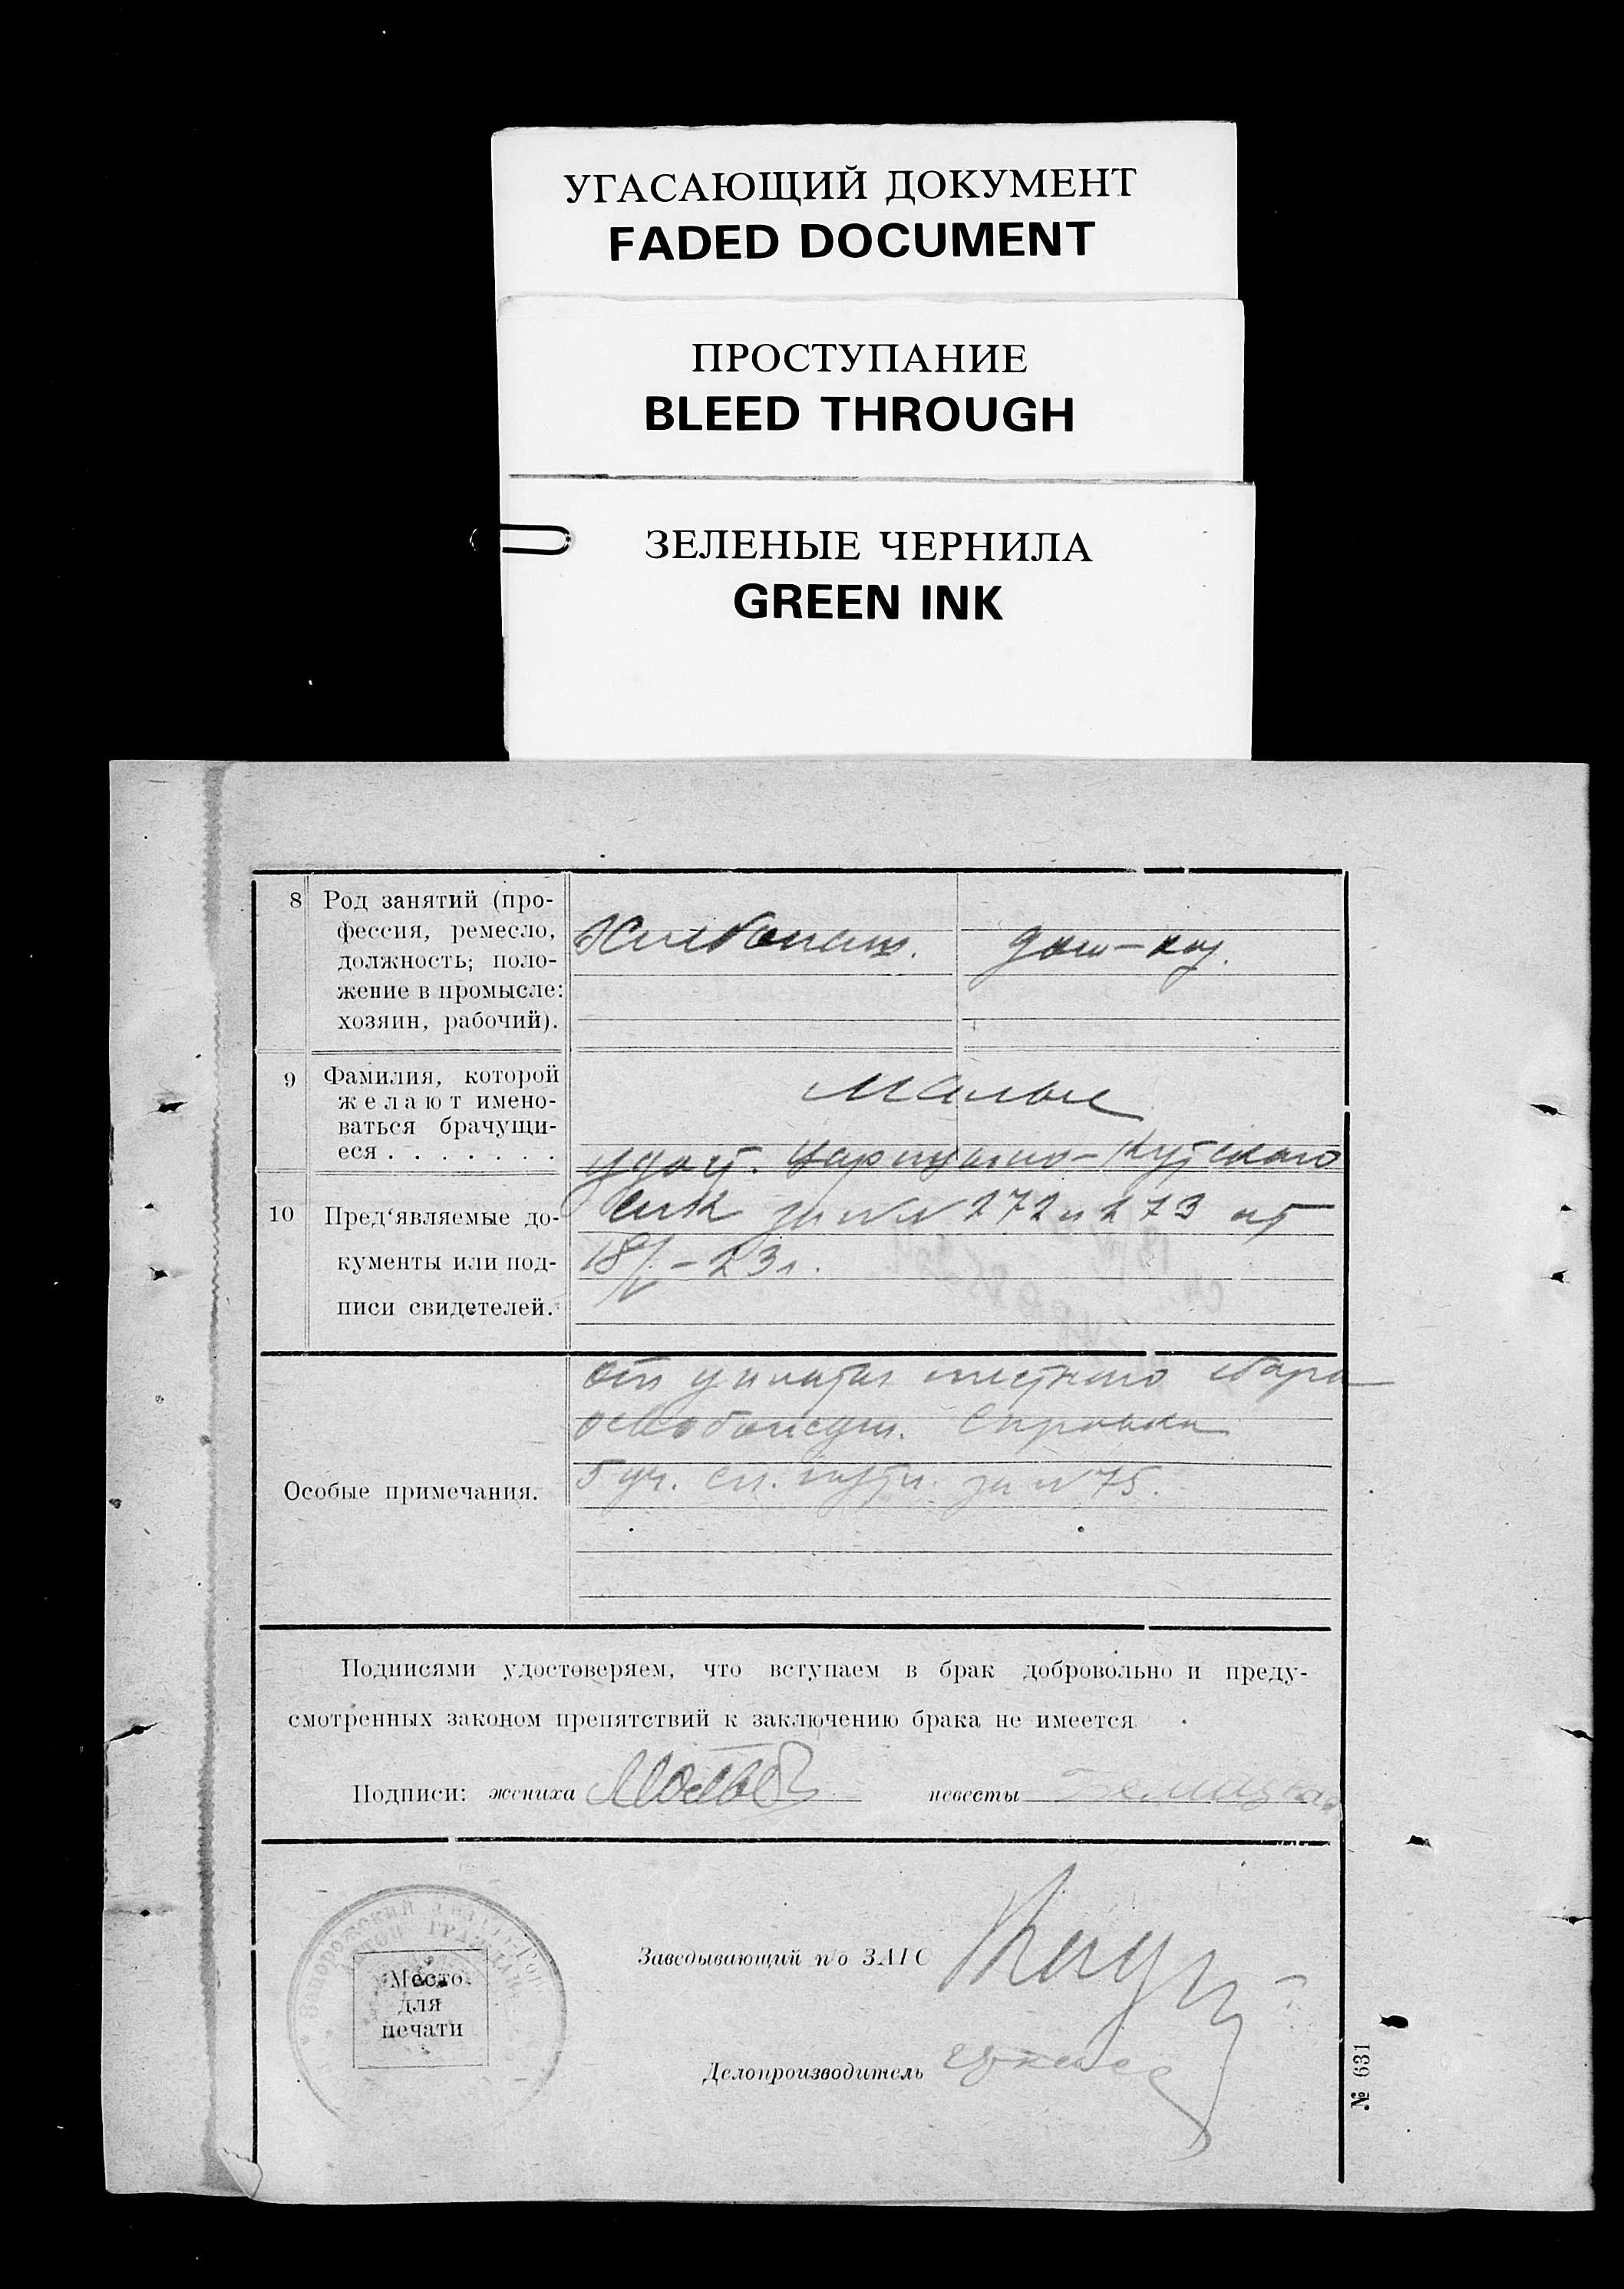 УГАСАЮЩИЙ ДОКУМЕНТ
FADED DOCUMENT
ПРОСТУПАНИЕ
BLEED THROUGH
ЗЕЛЕНЫЕ ЧЕРНИЛА
GREEN INK
8 Род занятий (про-
фессия, ремесло,
должность; поло-
жение в промысле:
хозяин, рабочий).
Хлебопаш. дом-хоз.
9 Фамилия, которой
желают имено-
ваться брачущи-
еся . . . . . . .
Малые
10 Пред'являемые до-
кументы или под-
писи свидетелей.
удост. Царицыно-Кутского
за №№ 272 и 273 от
18/V-23 г.
Особые примечания.
От уплаты местного сбора
освобожден. Справка
5 уч. за № 75.
Подписями удостоверяем, что вступаем в брак добровольно и преду-
смотренных законом препятствий к заключению брака не имеется
Подписи: жениха невесты
Заведывающий п/о ЗАГС
Место
для
печати
Делопроизводитель
№ 631